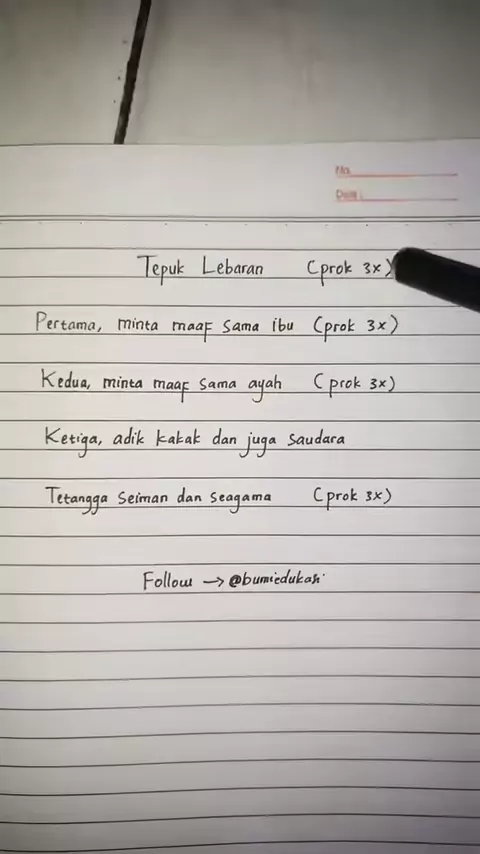 No.
Date :
Tepuk Lebaran (prok 3x)
Pertama, minta maaf sama ibu (prok 3x)
Kedua, minta maaf sama ayah (prok 3x)
Ketiga, adik kakak dan juga saudara
Tetangga seiman dan seagama (prok 3x)
Follow → @bumiedukasi